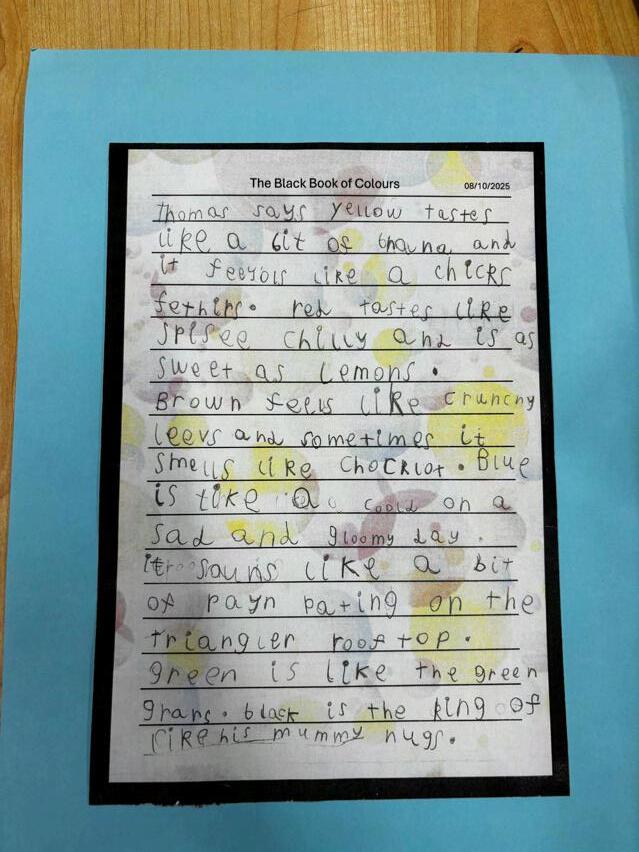 The Black Book of Colours
08/10/2025
Thomas says yellow tastes
like a bit of and
it like a chicks
fethirs. red tastes like
spisee chilly and is as
sweet as lemons.
Brown feels like crunchy
leevs and sometimes it
smells like chocklot. Blue
is like a coold on a
sad and gloomy day.
souns like a bit
of payn pating on the
trianguler roof top.
green is like the green
grars. black is the king of
like his mummy hugs.